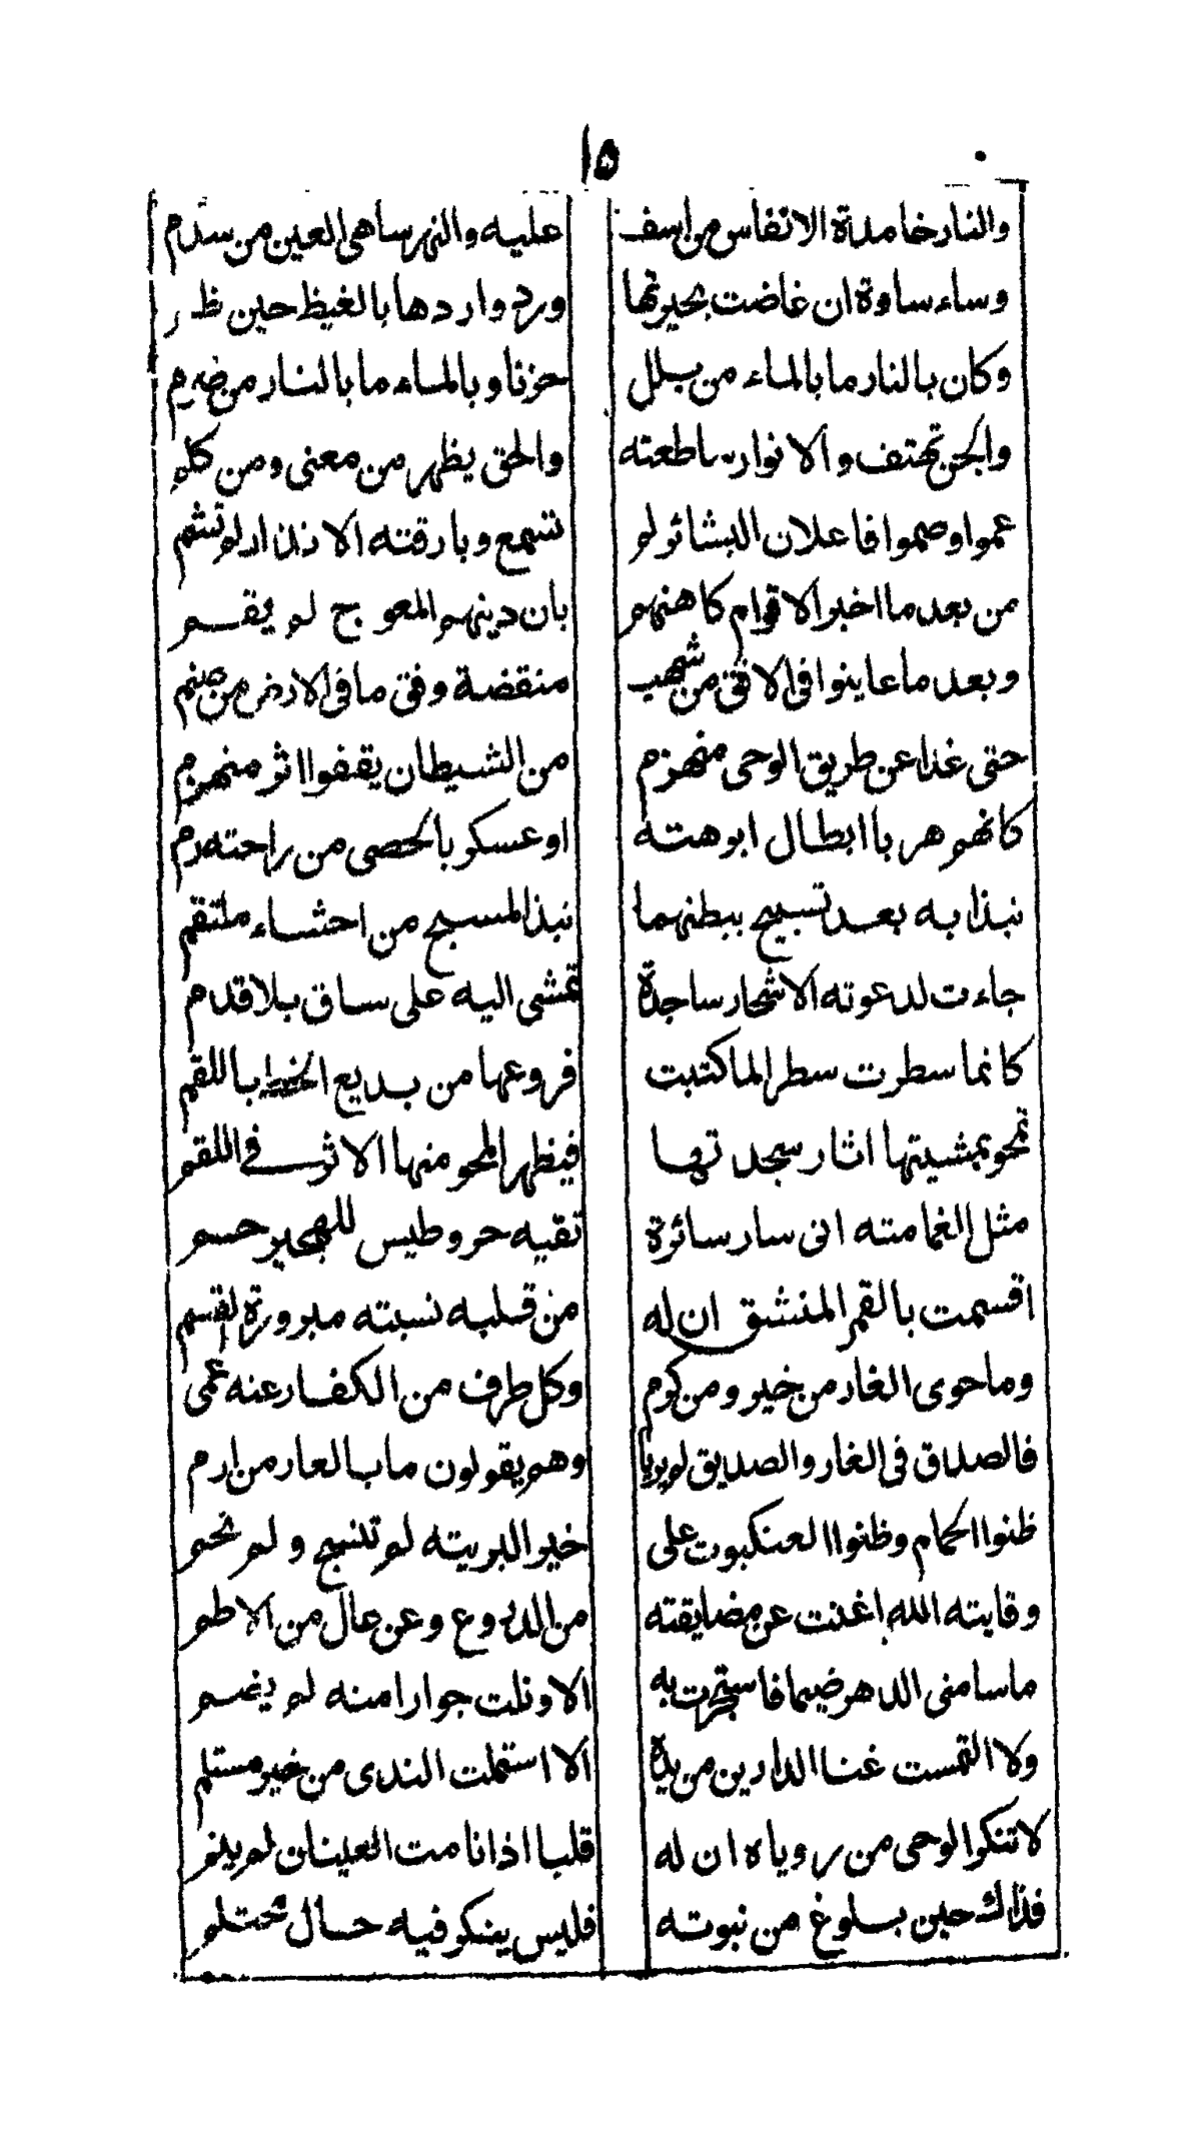 ١٥
والنار خامدة الانفاس من اسف عليه والنهر ساهى العين من سدم
وساء ساوة ان غاضت بحيرتها ورد واردها بالغيظ حين
وكان بالنار ما بالماء من بلل حزنا وبالماء ما بالنار من ضرم
والجن تهتف والانوار ساطعته والحق يظهر من معنى ومن كلم
عموا وصموا فاعلان البشائر لم تسمع وبارقته الانذار لم تشم
من بعد ما اخبر الاقوام كاهنهم بان دينهم المعوج لم يقم
وبعد ما عاينوا فى الافق من شهب منقضة وفق ما فى الارض من صنم
حتى غذا عن طريق الوحى منهزم من الشيطان يقفوا اثر منهزم
كانهم هربا ابطال ابرهته او عسكر بالحصى من راحته رم
نبذا به بعد تسبيح ببطنهما نبذ المسبح من احشاء ملتقم
جاءت لدعوته الاشجار ساجدة تمشى اليه على ساق بلا قدم
كانما سطرت سطر الما كتبت فروعها من بديع الخط باللقم
تمحو بمشيتها اثار سجدتها فيظهر المحو منها الاثر فى اللقم
مثل الغمامته انى سار سائرة تقيه حر وطيس للهجير حم
اقسمت بالقمر المنشق ان له من قلبه نسبته مبرورة القسم
وما حوى الغار من خير ومن كرم وكل طرف من الكفار عنه عمى
فالصداق فى الغار والصديق لم يريا وهم يقولون ما بالعار من ارم
ظنوا الحمام وظنوا العنكبوت على خير البريته لم تنسج ولم تحم
وقايته الله اغنت عن مضايقته من الدروع وعن عال من الاطم
ما سامنى الدهر ضيما فاستجرت به الا ونلت جوارا منه لم يضم
ولا التمست غنا الدارين من يدة الا استملت الندى من خير مستلم
لا تنكر الوحى من روياه ان له قلبا اذا نامت العينان لم ينم
فذاك حين بلوغ من نبوته فليس ينكر فيه حال محتلم